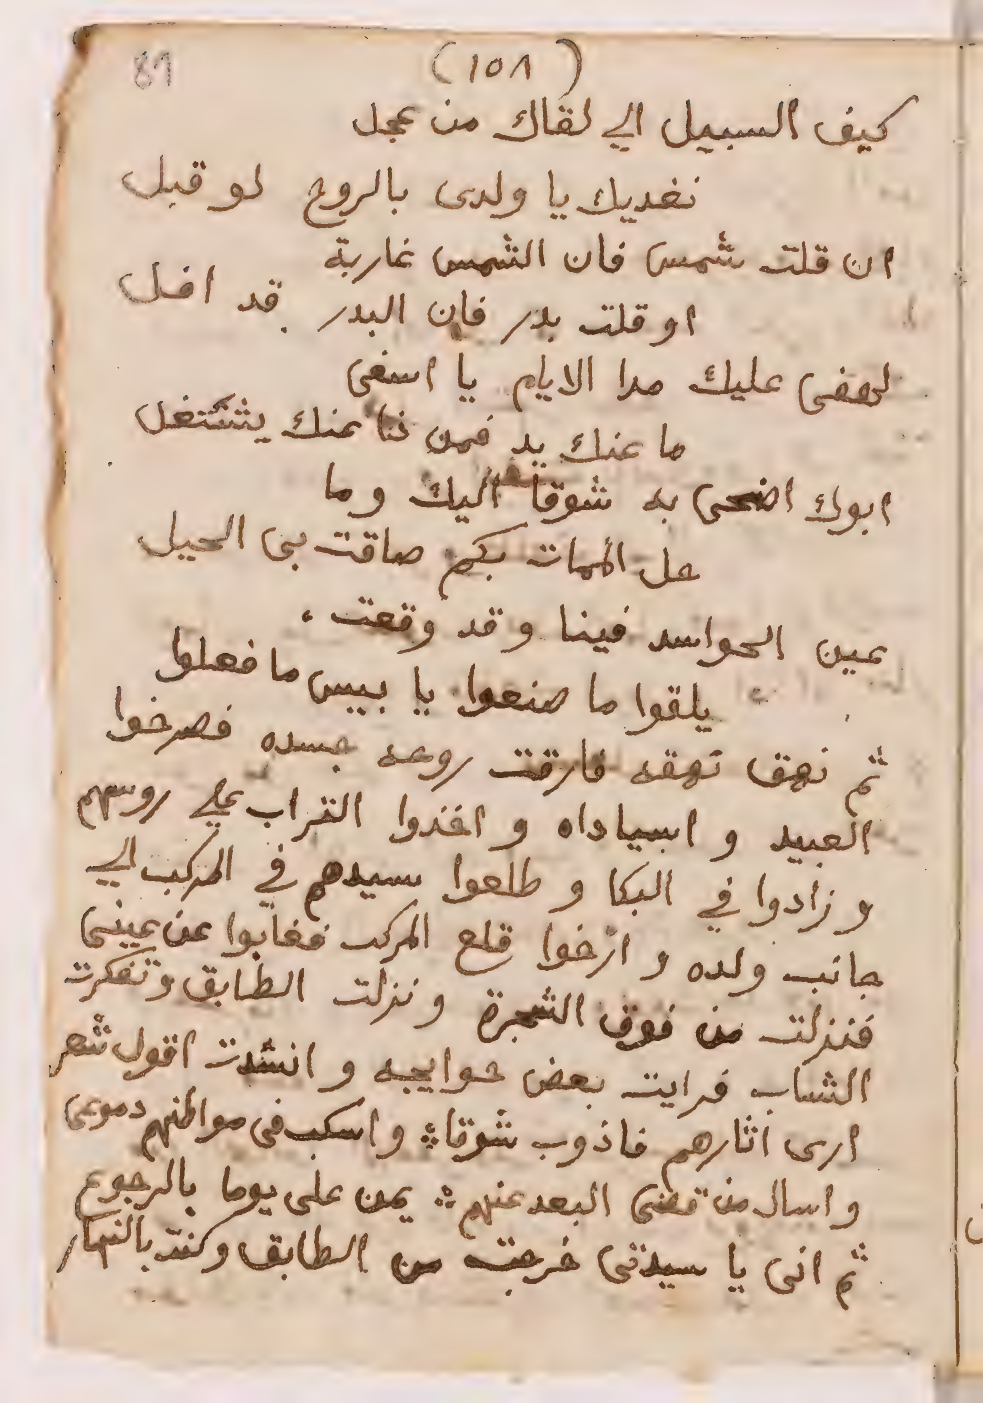 81
(١٥٨)
كيف السبيل الي لقاك من عجل
نفديك يا ولدى بالروح لو قبل
ان قلت شمس فان الشمس غاربة
او قلت بدر فان البدر قد افل
لهفى عليك مدا الايام يا اسفى
ما عنك بد فمن ذا عنك يشتغل
ابوك اضحى به شوقا اليك وما
حل الممات بكم ضاقت بى الحيل
عين الحواسد فينا وقد وقعت
يلقوا ما صنعوا يا بيس ما فعلوا
ثم نهق نهقه فارقت روحه جسده فصرخوا
العبيد و اسياداه و اخذوا التراب علي روسهم
و زادوا في البكا و طلعوا سيدهم في المركب الي
جانب ولده و ارخوا قلع المركب فغابوا عن عيني
فنزلت من فوق الشجرة و نزلت الطابق وتفكرت
الشاب فرايت بعض حوايجه و انشدت اقول شعر
ارى اثارهم فاذوب شوقا و اسكب فى مواطنهم دموعى
و اسال من قضى البعد عنهم يمن على يوما بالرجوع
ثم انى يا سيدتى خرجت من الطابق وكنت بالنهار